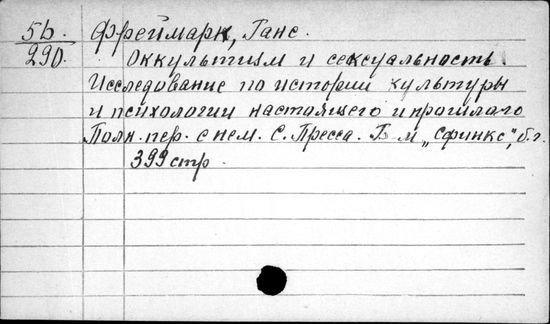 5b. Фреймарк, Ганс.
290. Оккультизм и сексуальность
Исследование по истории культуры
и психологии настоящего и прошлаго
Полн. пер. с нем. С. Пресса. Б м „Сфинкс", б. г.
399 стр.